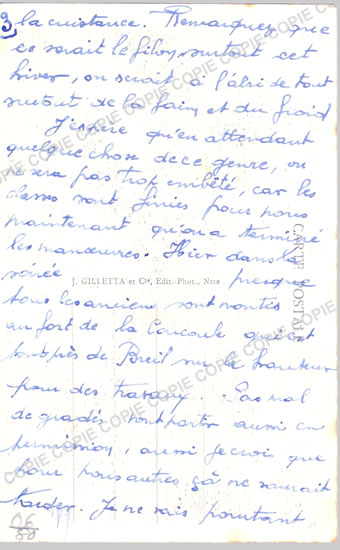 3 la cuistance. Remarquez que
ce serait le filon, surtout cet
hiver, on serait à l'abri de tout
surtout de la faim et du froid
J'espère qu'en attendant
quelque chose de ce genre, on
ne sera pas trop embêté, car les
classes sont finies pour nous
maintenant qu'on a terminé
les manœuvres. Hier dans la
soirée presque
J. GILLETTA et Cie, Edit.-Phot., Nice
tous les anciens sont montés
au fort de la qui est
tout près de Breil sur la hauteur
pour des travaux. Pas mal
de gradés sont partis aussi en
permission, aussi je crois que
pour nous autres, çà ne saurait
tarder. Je ne sais pourtant
CARTE POSTALE
COPIE COPIE COPIE COPIE COPIE COPIE